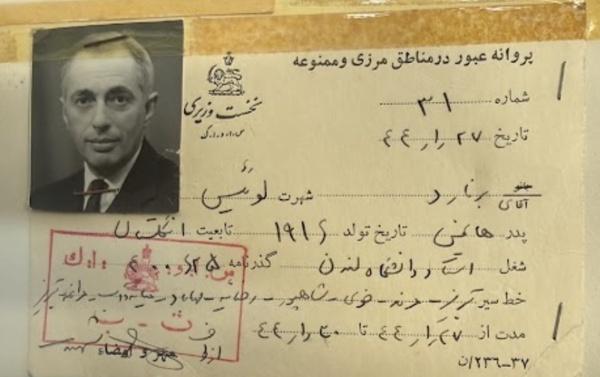 پروانه عبور در مناطق مرزی و ممنوعه
نخست وزیری
س.ا.و.ا.ک
شماره ۳۱
تاریخ ۲۷ ر ۱ ر ۴۴
آقای برنارد شهرت لوئیس
پدر تاریخ تولد ۱۹۱۶ تابعیت انگلستان
شغل استاد دانشگاه لندن گذرنامه
خط سیر تبریز - مرند - خوی - شاهپور - رضائیه - مهاباد - میاندوآب - مراغه - تبریز
مدت از ۲۷ ر ۱ ر ۴۴ تا ۳۰ ر ۱ ر ۴۴
مهر و امضاء
۳۷-۲۳۶/ن